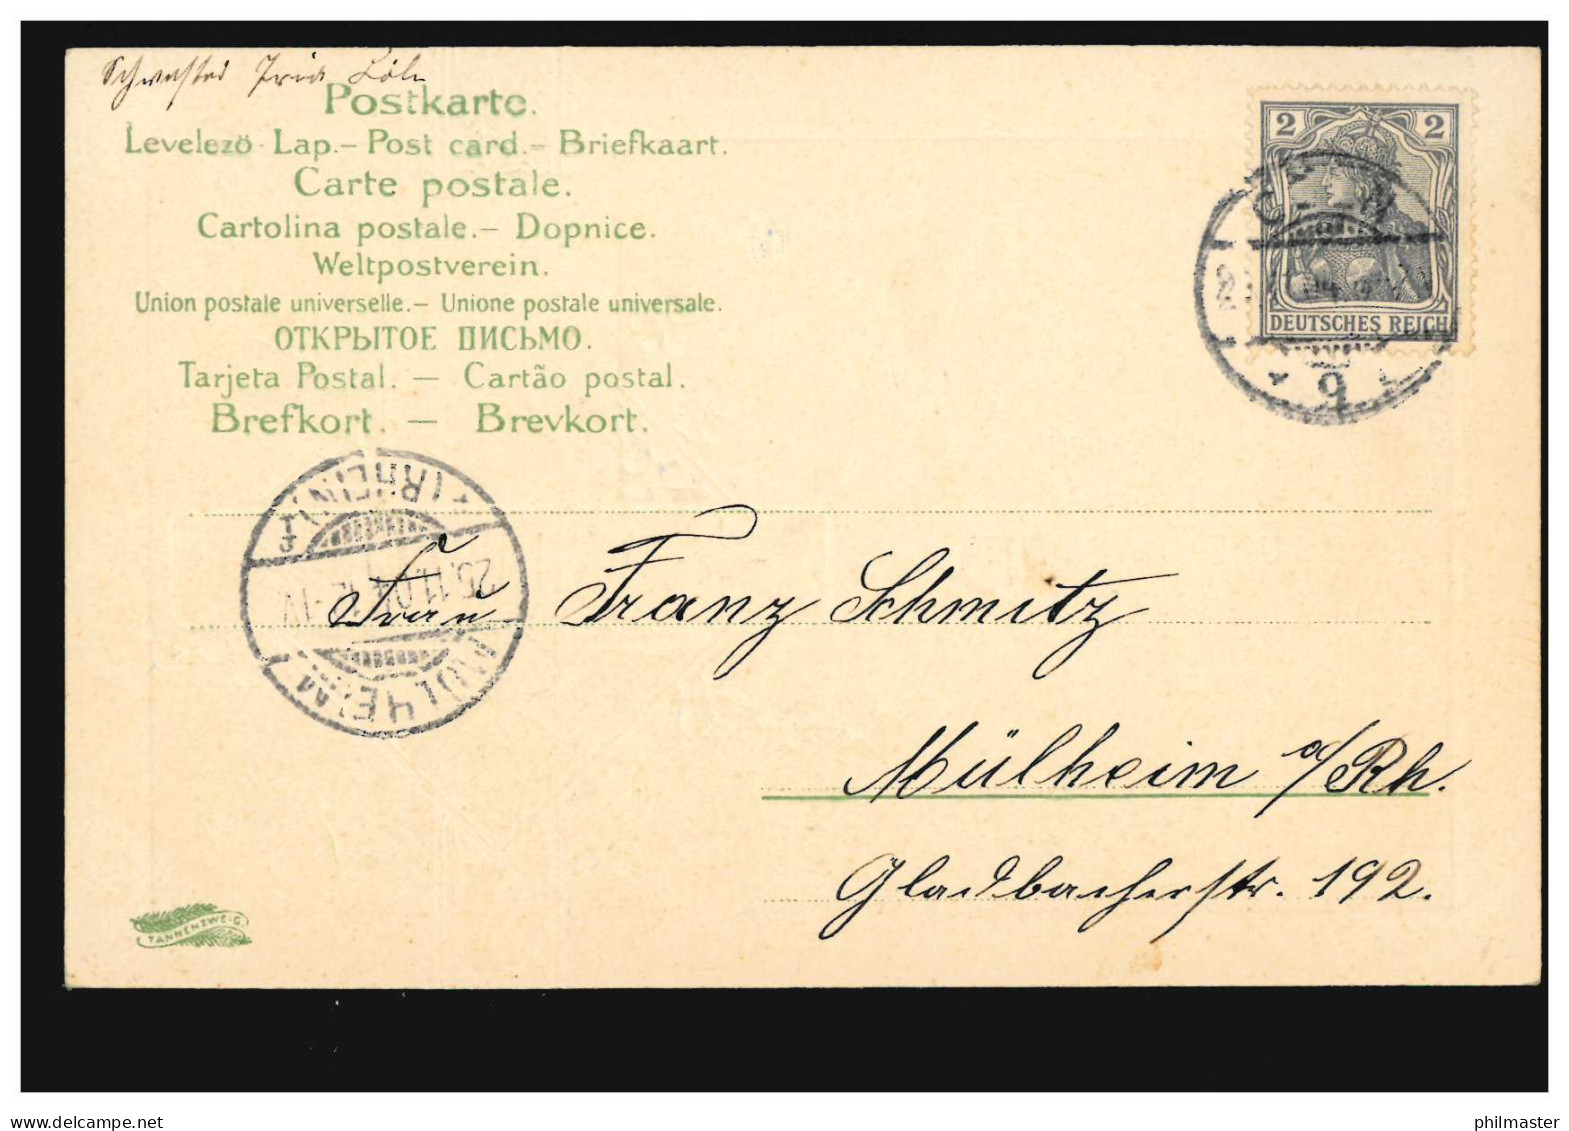 Schwester Köln
Postkarte.
Levelező Lap.– Post card.– Briefkaart.
Carte postale.
Cartolina postale.– Dopnice.
Weltpostverein.
Union postale universelle.– Unione postale universale.
ОТКРЫТОЕ ПИСЬМО.
Tarjeta Postal. — Cartão postal.
Brefkort. — Brevkort.
2 2
DEUTSCHES REICH
9
(RHEIN)
25.11.04
MÜLHEIM
Frau Franz Schmitz
Mülheim a/Rh.
Gladbacherstr. 192.
TANNENZWEIG
www.delcampe.net
philmaster